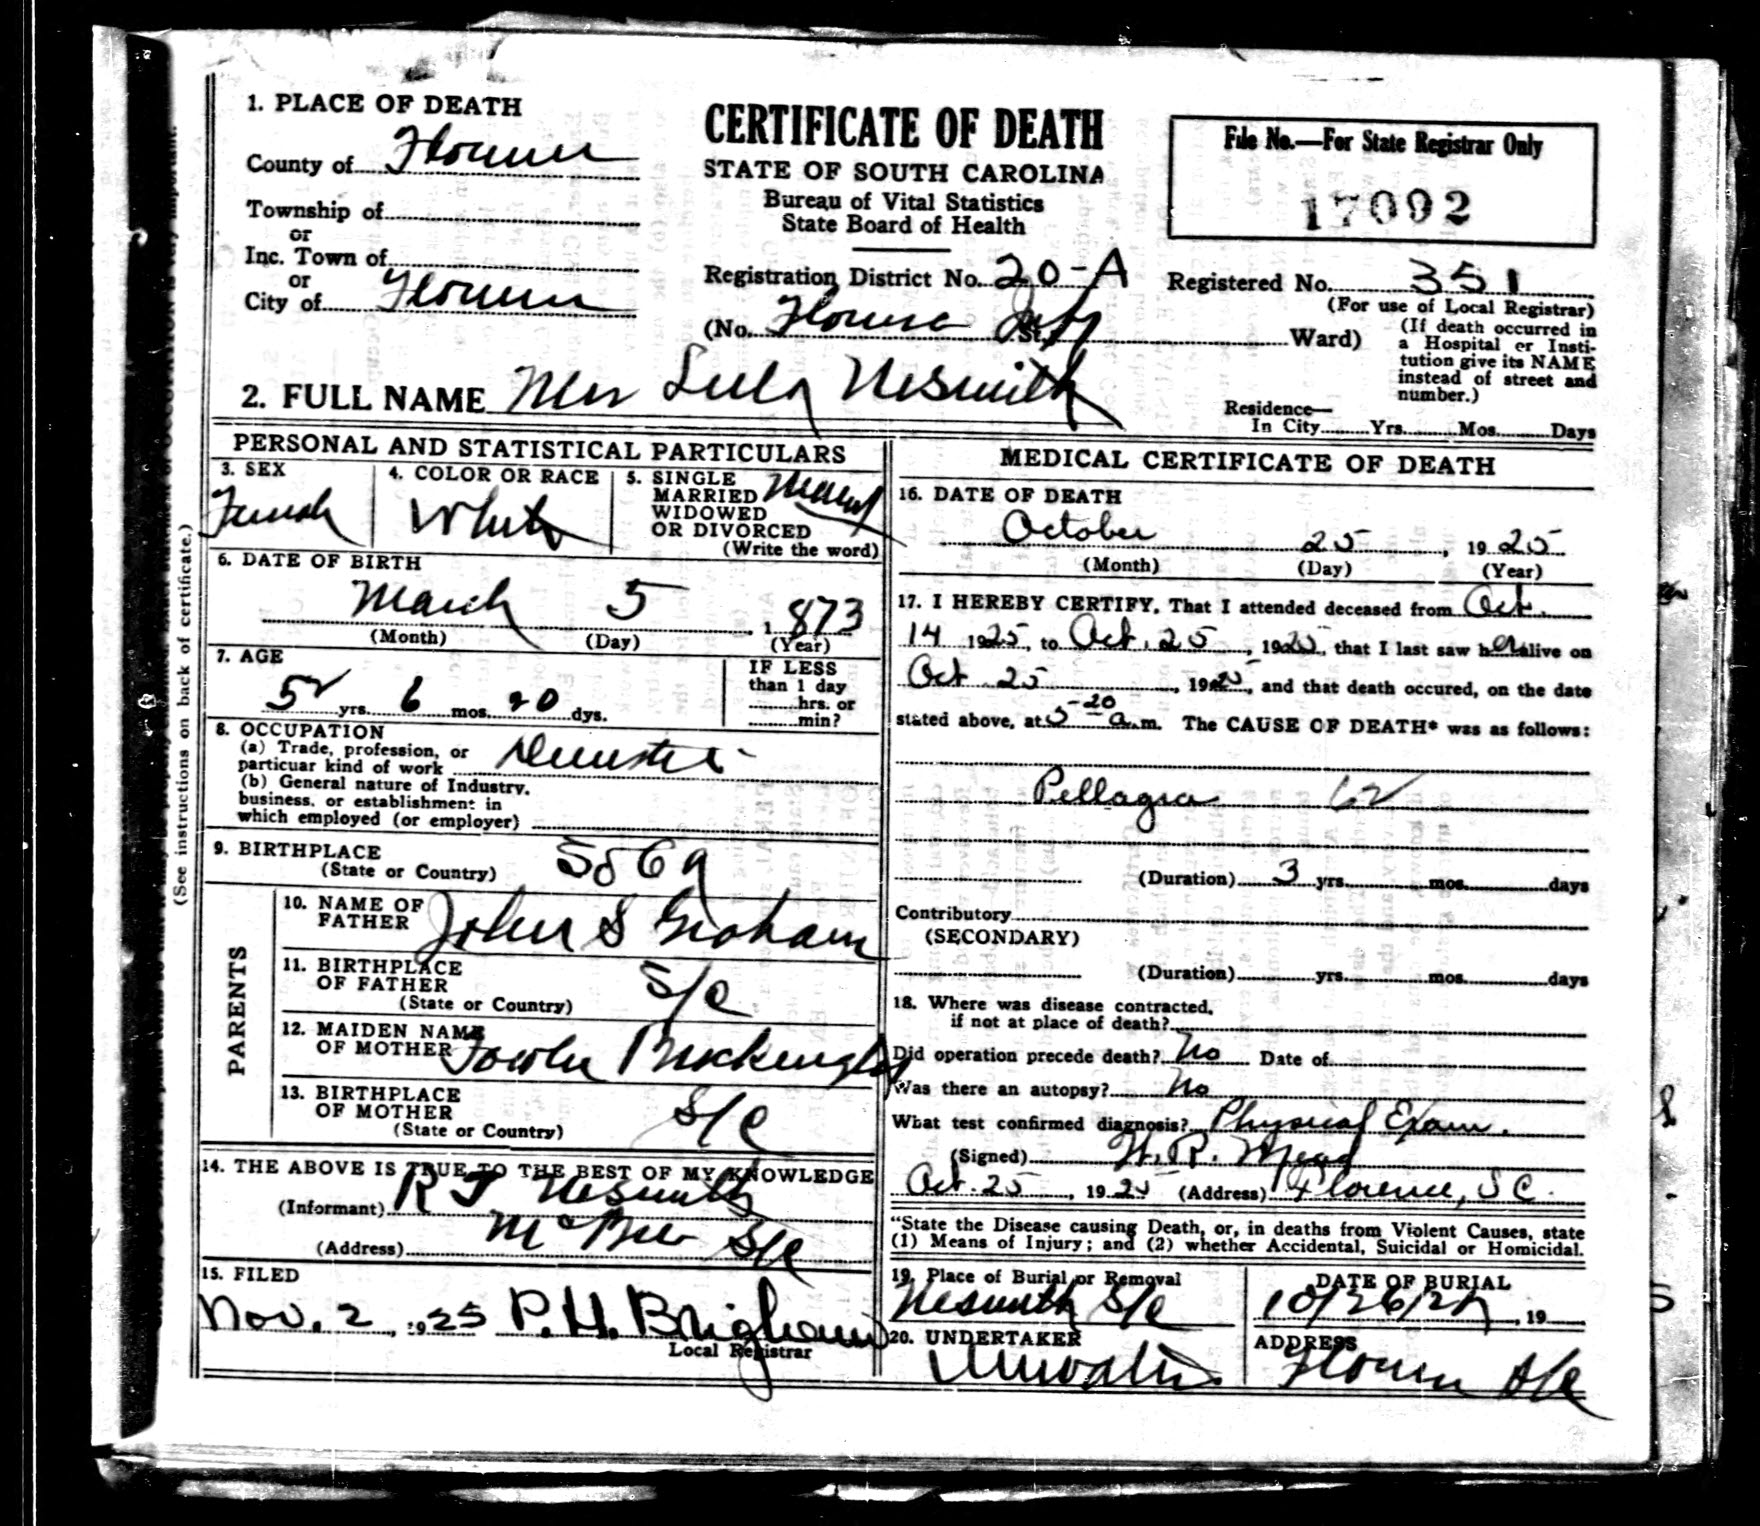 1. PLACE OF DEATH
County of Florence
Township of
or
Inc. Town of
or
City of Florence
CERTIFICATE OF DEATH
STATE OF SOUTH CAROLINA
Bureau of Vital Statistics
State Board of Health
Registration District No. 20-A
(No. Florence St. Ward)
File No.—For State Registrar Only
17092
Registered No. 351
(For use of Local Registrar)
(If death occurred in
a Hospital or Insti-
tution give its NAME
instead of street and
number.)
Residence—
In City Yrs. Mos. Days
2. FULL NAME Mrs Lula Nesmith
PERSONAL AND STATISTICAL PARTICULARS
3. SEX
Female
4. COLOR OR RACE
White
5. SINGLE
MARRIED
WIDOWED
OR DIVORCED
(Write the word)
Married
6. DATE OF BIRTH
March 5 1873
(Month) (Day) (Year)
7. AGE
52 yrs. 6 mos. 20 dys.
IF LESS
than 1 day
hrs. or
min?
8. OCCUPATION
(a) Trade, profession, or
particuar kind of work Domestic
(b) General nature of Industry,
business, or establishment in
which employed (or employer)
9. BIRTHPLACE
(State or Country)
10. NAME OF
FATHER John S Graham
11. BIRTHPLACE
OF FATHER
(State or Country) S/C
12. MAIDEN NAME
OF MOTHER
13. BIRTHPLACE
OF MOTHER
(State or Country) S/C
PARENTS
14. THE ABOVE IS TRUE TO THE BEST OF MY KNOWLEDGE
(Informant) R J Nesmith
(Address) McBee S/C
15. FILED
Nov. 2, 1925 P. H. Brigham
Local Registrar
(See instructions on back of certificate.)
MEDICAL CERTIFICATE OF DEATH
16. DATE OF DEATH
October 25, 1925
(Month) (Day) (Year)
17. I HEREBY CERTIFY, That I attended deceased from Oct.
14 1925, to Oct. 25, 1925, that I last saw her alive on
Oct 25, 1925, and that death occured, on the date
stated above, at 5-20 a.m. The CAUSE OF DEATH* was as follows:
Pellagra 62
(Duration) 3 yrs. mos. days
Contributory
(SECONDARY)
(Duration) yrs. mos. days
18. Where was disease contracted,
if not at place of death?
Did operation precede death? No Date of
Was there an autopsy? No
What test confirmed diagnosis? Physical Exam.
(Signed) W. R. Mead
Oct. 25, 1925 (Address) Florence, S C.
"State the Disease causing Death, or, in deaths from Violent Causes, state
(1) Means of Injury; and (2) whether Accidental, Suicidal or Homicidal.
19. Place of Burial or Removal
Nesmith S/C
DATE OF BURIAL
10/26/25, 19
20. UNDERTAKER
ADDRESS
Florence S/C